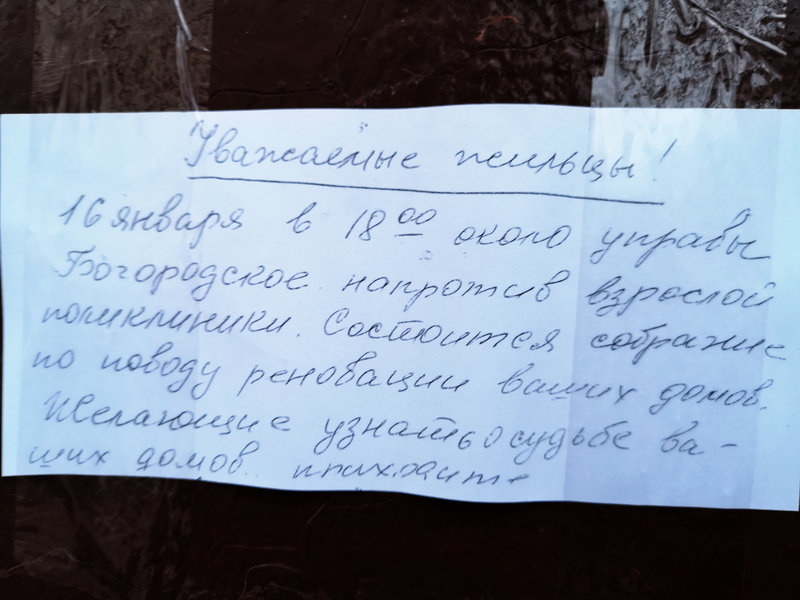 Уважаемые жильцы!
16 января в 18 00 около управы
Богородское напротив взрослой
поликлиники. Состоится собрание
по поводу реновации ваших домов.
Желающие узнать о судьбе ва-
ших домов приходите